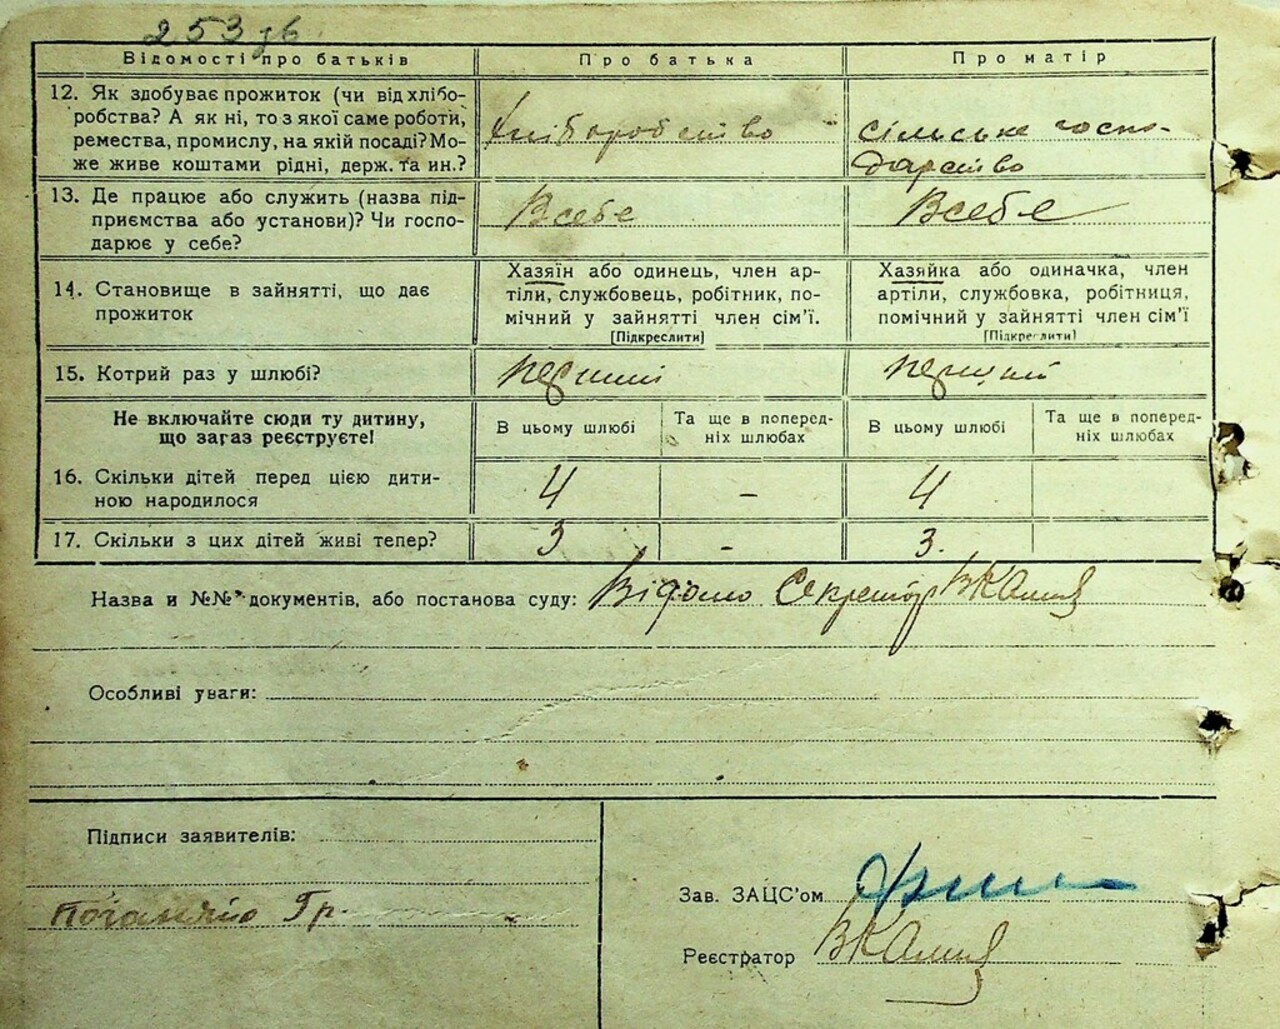 253 зв
Відомості про батьків Про батька Про матір
12. Як здобуває прожиток (чи від хлібо-
робства? А як ні, то з якої саме роботи,
ремества, промислу, на якій посаді? Мо-
же живе коштами рідні, держ. та ин.?
хліборобство
сільське госпо-
дарство
13. Де працює або служить (назва під-
приємства або установи)? Чи госпо-
дарює у себе?
Всебе
Всебе
14. Становище в зайнятті, що дає
прожиток
Хазяїн або одинець, член ар-
тілі, службовець, робітник, по-
мічний у зайнятті член сім'ї.
[Підкреслити]
Хазяйка або одиначка, член
артілі, службовка, робітниця,
помічний у зайнятті член сім'ї
[Підкреслити]
15. Котрий раз у шлюбі?
перший
перший
Не включайте сюди ту дитину,
що загаз реєструєте!
В цьому шлюбі
Та ще в поперед-
ніх шлюбах
В цьому шлюбі
Та ще в поперед-
ніх шлюбах
16. Скільки дітей перед цією дити-
ною народилося
4 – 4
17. Скільки з цих дітей живі тепер? 3 - 3.
Назва и №№ документів, або постанова суду: Відомо Секретар
Особливі уваги:
Підписи заявителів:
Гр.
Зав. ЗАЦС'ом
Реєстратор